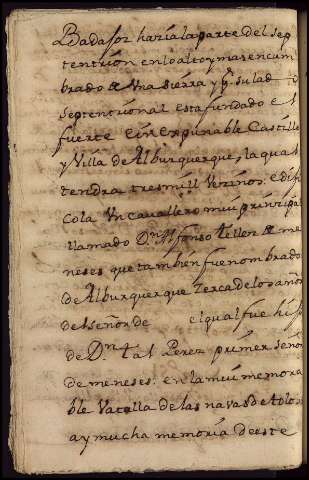 Badafoz hazia la parte del sep
tentrion en lo alto y mas encum
brado de Una sierra y su lad
septentrional esta fundado e
fuerte e inexpunable Castillo
y Villa de Alburquerque, la qual
tendra tres mill Vezinos. edifi
cola Un cavallero mui prinzipal
llamado Dn. Alfonso tellez de me
neses que tambien fue nombrado
de Alburquerque zerca de los años
del señor de el qual fue hijo
de Dn. tal Perez primer señor
de meneses. en la mui memora
ble Vatalla de las navas de tolosa
ay mucha memoria de este